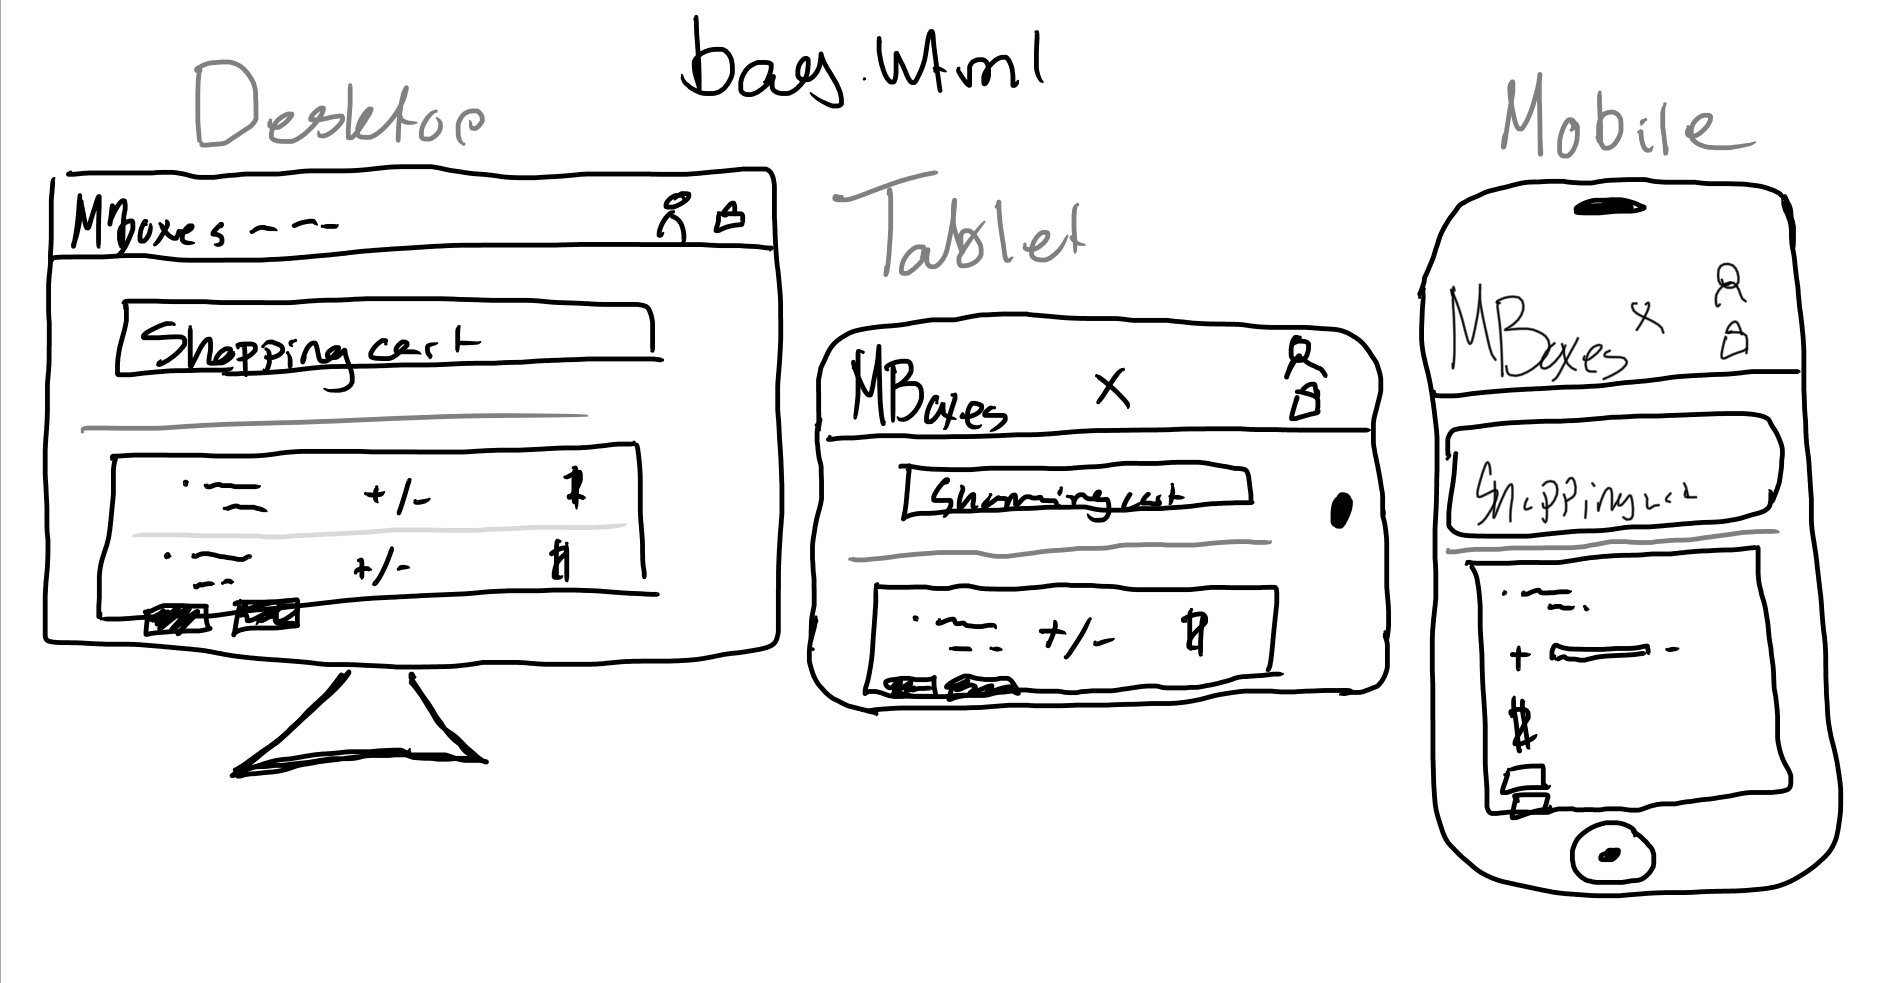 bag.html
Desktop
MBoxes - - -
Shopping cart
+/- $
+/- $
Tablet
MBoxes X
Shopping cart
+/- $
Mobile
MBoxes X
Shopping cart
+ -
$